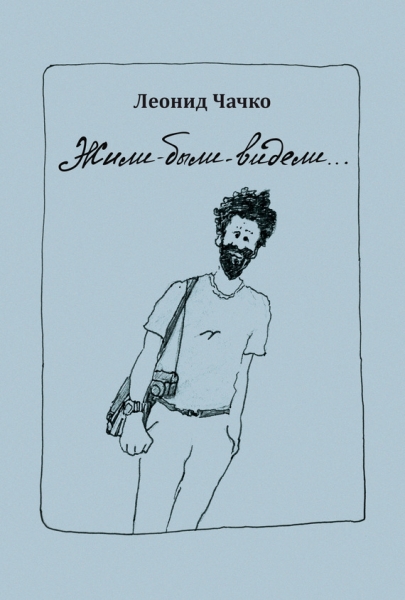 Леонид Чачко
Жили-были-видели...